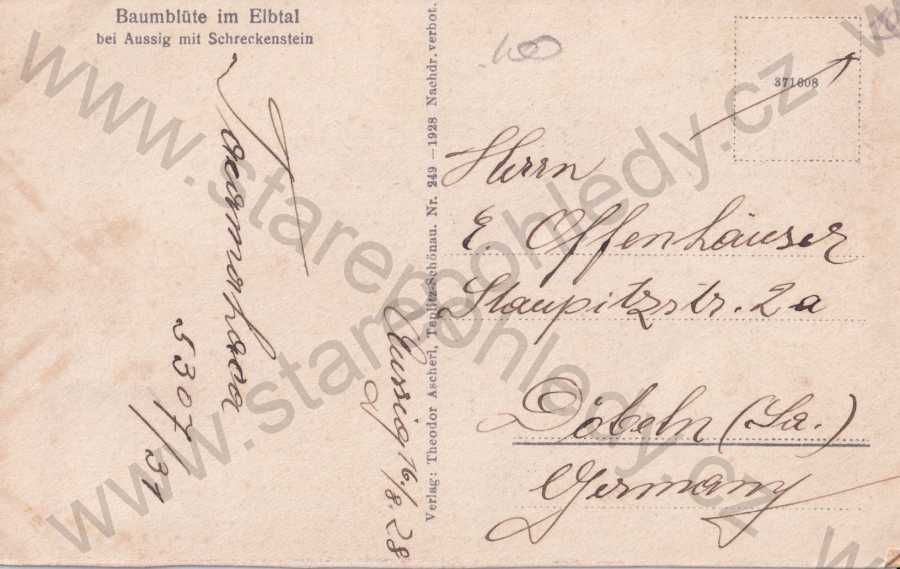 Baumblüte im Elbtal
bei Aussig mit Schreckenstein
5307/31
Aussig 16./8. 28
Verlag: Theodor Ascherl, Teplitz-Schönau. Nr. 249 — 1928 Nachdr. verbot.
371608
Herrn
E. Offenhäuser
Staupitzstr. 2a
Döbeln (Sa.)
Germany
www.starepohledy.cz
www.starepohledy.cz